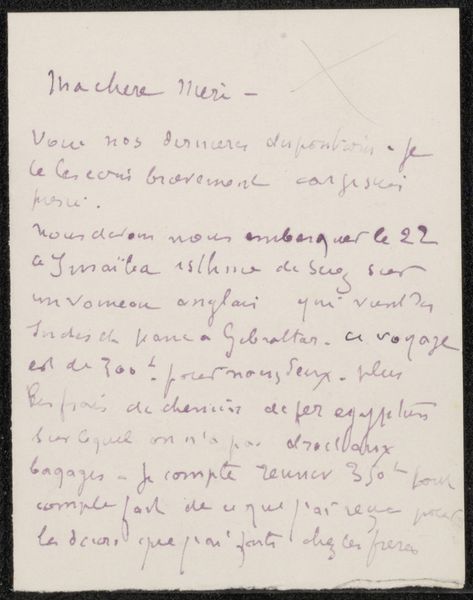 Ma chere Meri -
Voici nos dernieres dispositions - je
te les ecris brievement car je suis
pressé.
nous devons nous embarquer le 22
a Ismaïlia isthme de Suez sur
un vaisseau anglais qui vient des
Indes et passe a Gibraltar. ce voyage
est de 300 f. pour nous deux. plus
les frais de chemins de fer egyptiens
sur lequel on n'a pas droit aux
bagages - Je compte 350 f pour
compte fait de ce que j'ai reçu pour
les decors que j'ai faits chez les freres